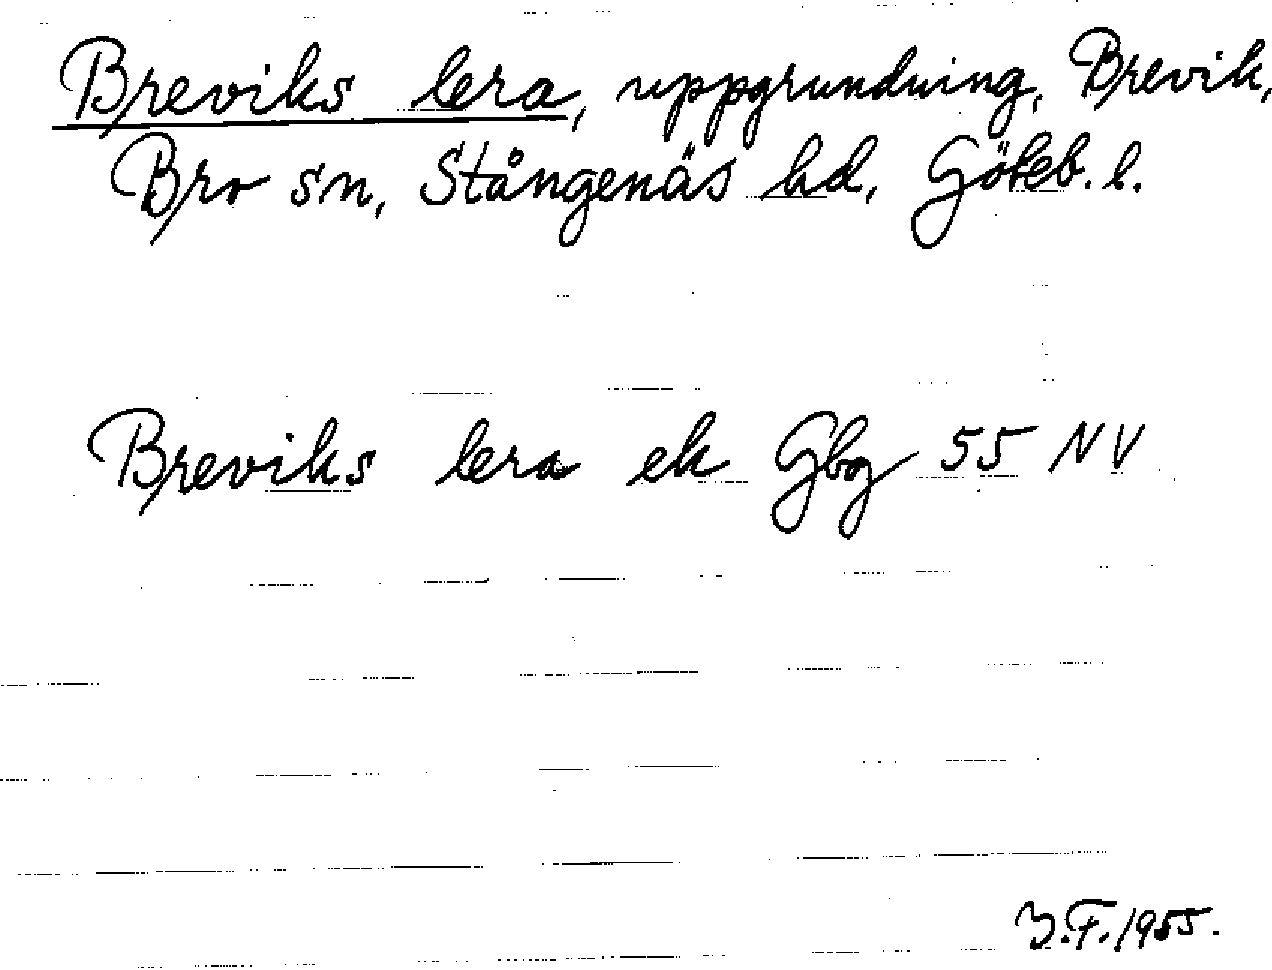 Breviks lera, uppgrundning, Brevik,
Bro sn, Stångenäs hd, Göteb. l.
Breviks lera ek Gbg 55 NV
Y.F. 1955.